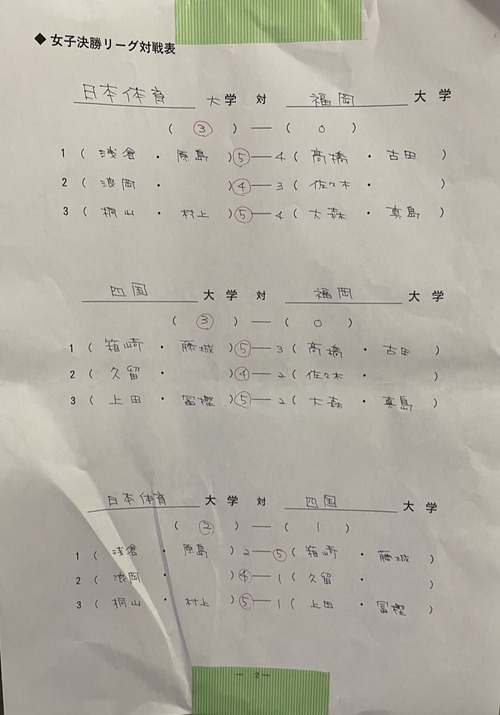 ◆ 女子決勝リーグ対戦表
日本体育 大学 対 福岡 大学
( ③ ) — ( 0 )
1 ( 浅倉 ・ 原島 ) ⑤ — 4 ( 髙橋 ・ 古田 )
2 ( 浪岡 ・ ) ④ — 3 ( 佐々木 ・ )
3 ( 桐山 ・ 村上 ) ⑤ — 4 ( 大森 ・ 真島 )
四国 大学 対 福岡 大学
( ③ ) — ( 0 )
1 ( 箱崎 ・ 藤城 ) ⑤ — 3 ( 髙橋 ・ 古田 )
2 ( 久留 ・ ) ④ — 2 ( 佐々木 ・ )
3 ( 上田 ・ 冨樫 ) ⑤ — 2 ( 大森 ・ 真島 )
日本体育 大学 対 四国 大学
( ② ) — ( 1 )
1 ( 浅倉 ・ 原島 ) 2 — ⑤ ( 箱崎 ・ 藤城 )
2 ( 浪岡 ・ ) ④ — 1 ( 久留 ・ )
3 ( 桐山 ・ 村上 ) ⑤ — 1 ( 上田 ・ 冨樫 )
— 2 —